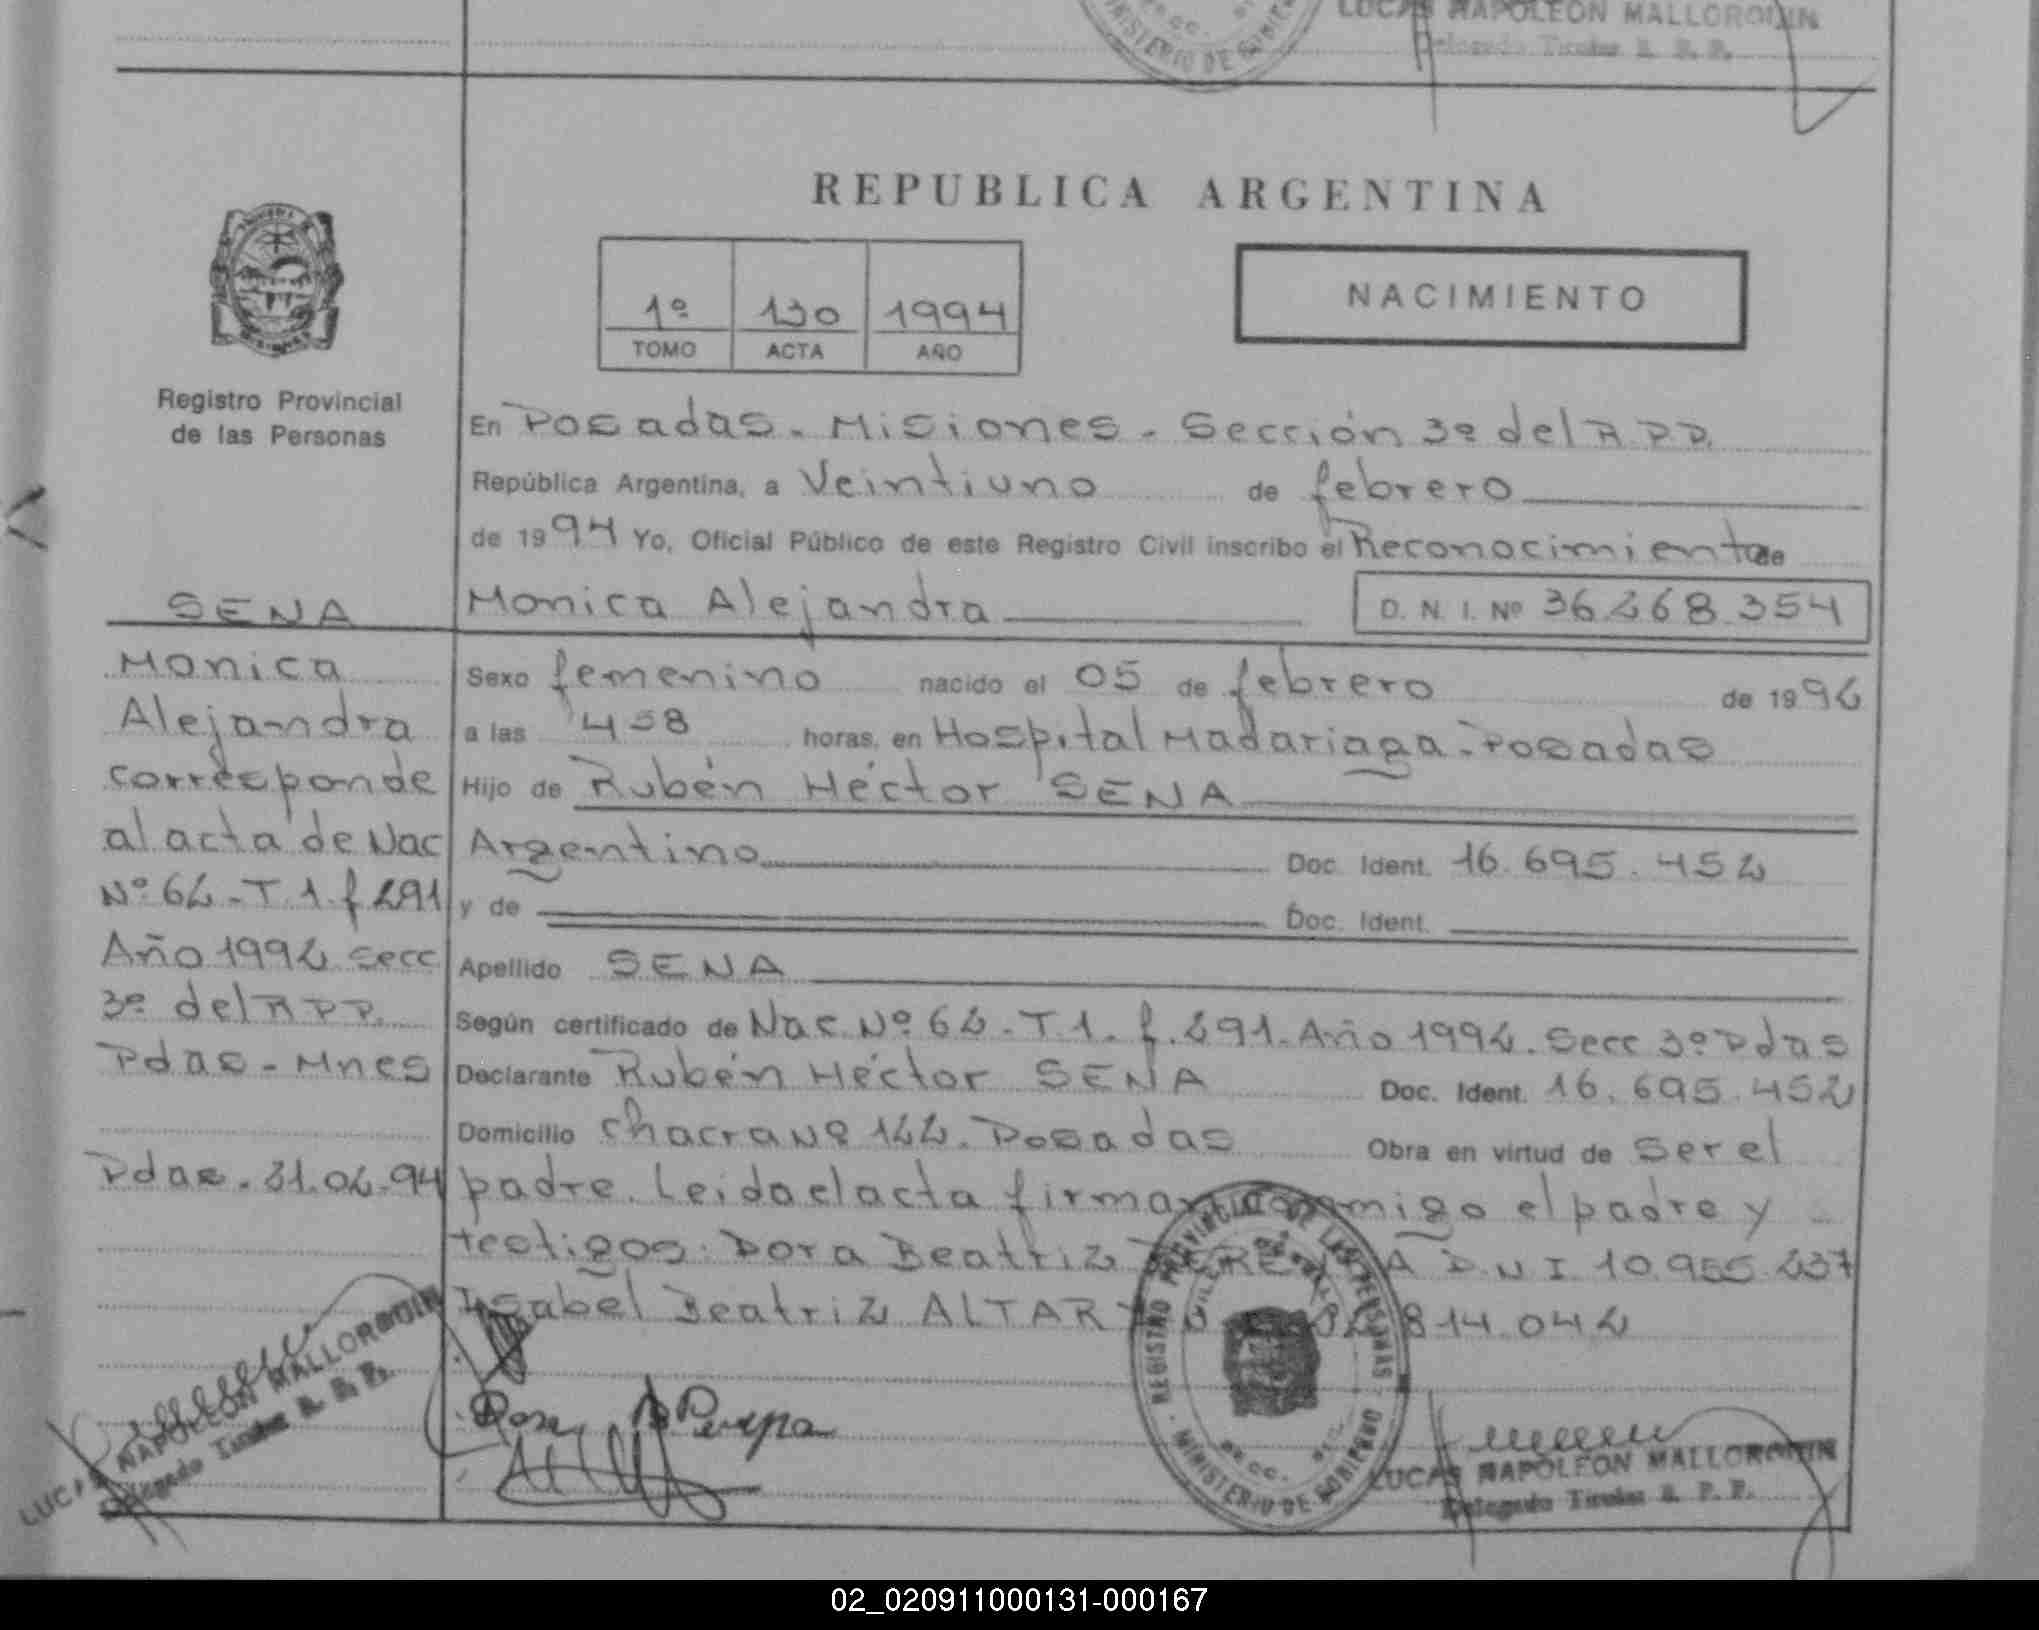 LUCAS NAPOLEON MALLORQUIN
Delegado Titular R. P. P.
MINISTERIO DE GOBIERNO
REPUBLICA ARGENTINA
1º 130 1994
TOMO ACTA AÑO
NACIMIENTO
Registro Provincial
de las Personas
En Posadas - Misiones - Sección 3º del R.P.P.
República Argentina, a Veintiuno de febrero
de 1994 Yo, Oficial Público de este Registro Civil inscribo el Reconocimiento de
Monica Alejandra D. N. I. Nº 36.268.354
Sexo femenino nacido el 05 de febrero de 1992
a las 458 horas, en Hospital Madariaga - Posadas
Hijo de Rubén Héctor SENA
Argentino Doc. Ident. 16.695.452
y de Doc. Ident.
Apellido SENA
Según certificado de Nac Nº 62 - T.1. f.291. Año 1992. Secc 3º Pdas
Declarante Rubén Héctor SENA Doc. Ident. 16.695.452
Domicilio Chacra Nº 122. Posadas Obra en virtud de ser el
padre. Leida el acta firman conmigo el padre y
testigos: Dora Beatriz A D N I 10.955.237
Isabel Beatriz 814.042
SENA
Monica
Alejandra
corresponde
al acta de Nac
Nº 62 - T.1. f 291
Año 1992 secc
3º del R P P.
Pdas - Mnes
Pdas. 21.02.94
LUCAS NAPOLEON MALLORQUIN
Delegado Titular R. P. P.
REGISTRO PROVINCIAL DE LAS PERSONAS
MINISTERIO DE GOBIERNO
LUCAS NAPOLEON MALLORQUIN
Delegado Titular R. P. P.
02_020911000131-000167